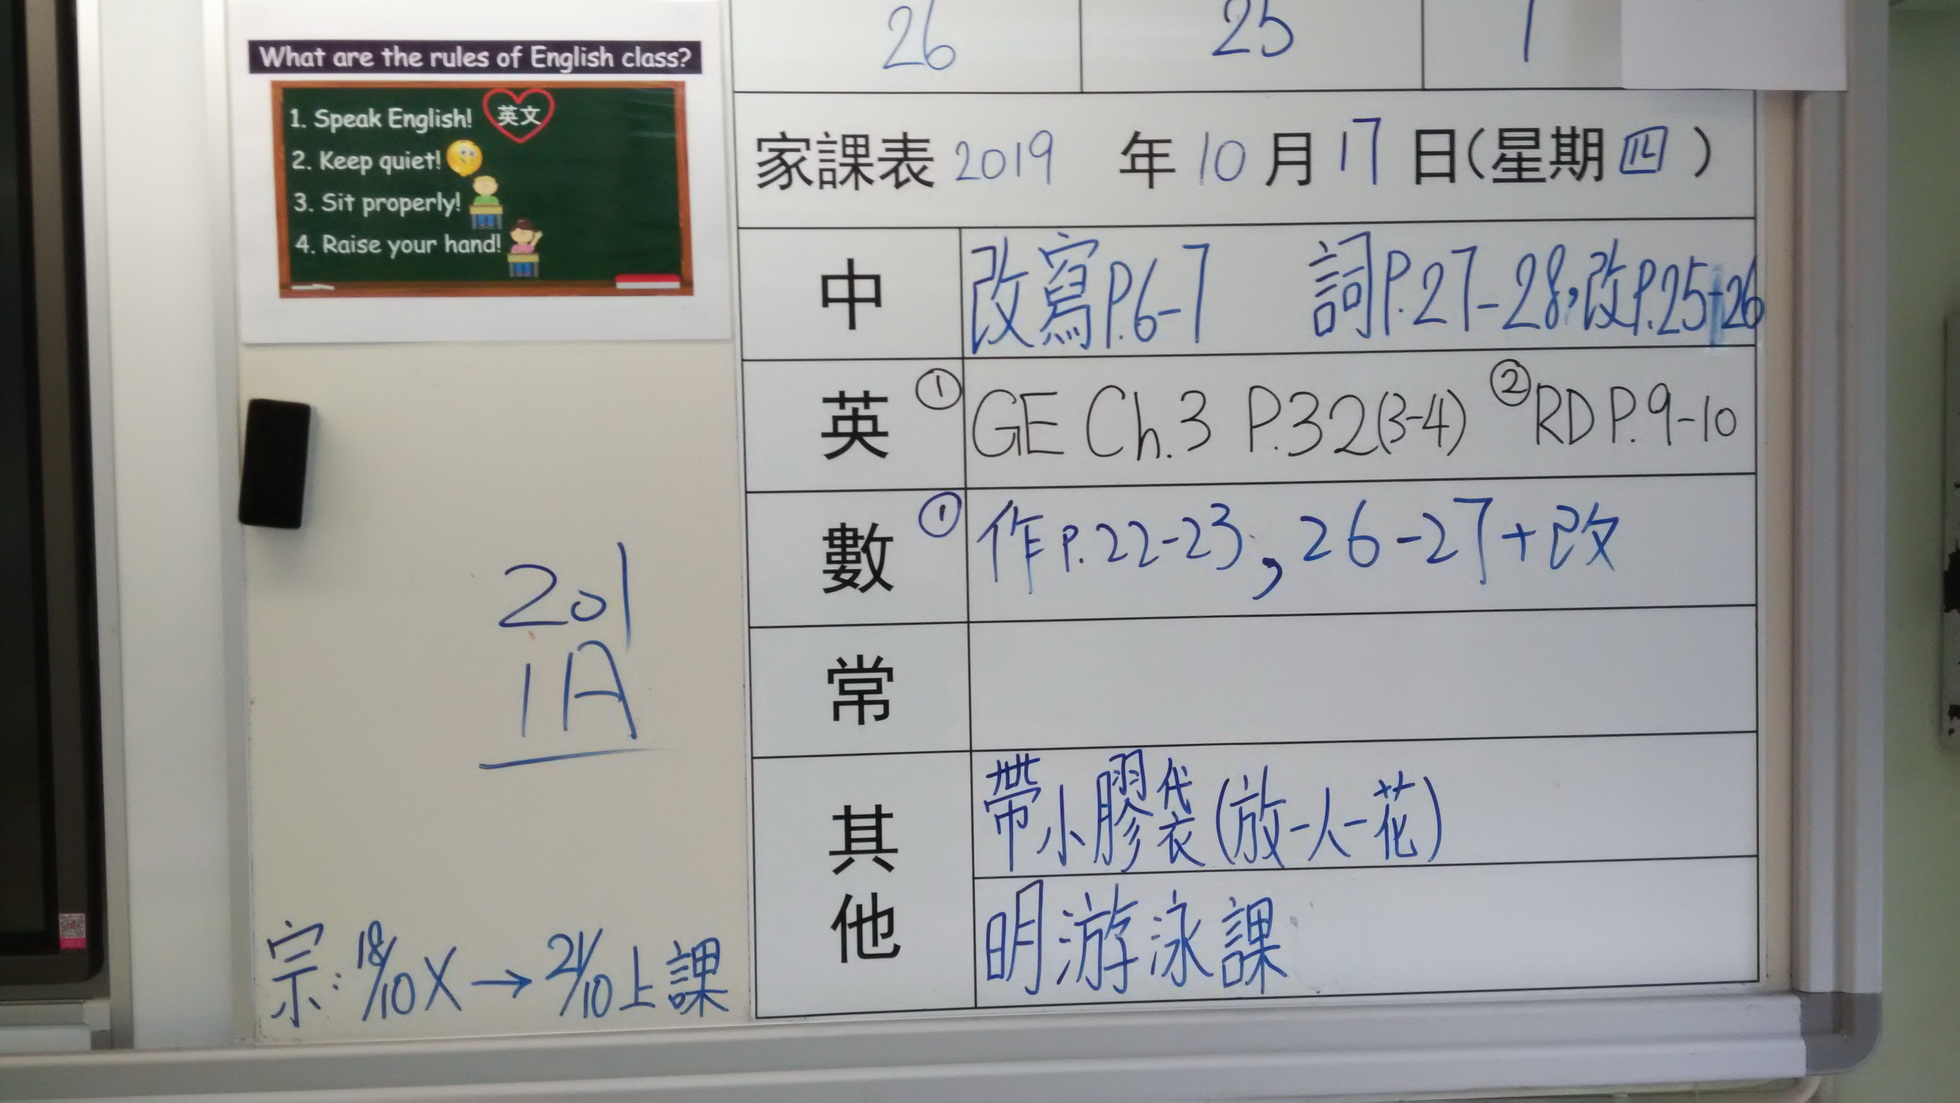 What are the rules of English class?
1. Speak English! 英文
2. Keep quiet!
3. Sit properly!
4. Raise your hand!
26 25 1
家課表 2019 年 10 月 17 日(星期四)
中 改寫P.6-7 詞P.27-28,改P.25-26
英 ① GE Ch.3 P.32(3-4) ② RD P.9-10
數 ① 作P.22-23, 26-27+改
常
其他 帶小膠袋(放一人一花)
明游泳課
201
1A
宗: 18/10 X → 21/10 上課